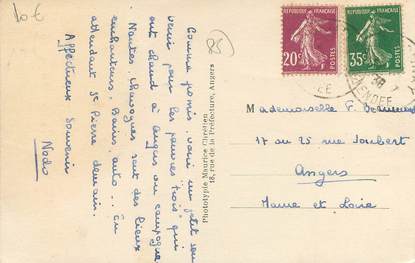 10 €
85
Comme promis, voici un petit souvenir pour les pauvres "trois" qui
ont chaud à Angers ou campagne
Nantes, Chavagnes sont des lieux
enchanteurs. Bains, auto... En
attendant St Pierre demain.
Affectueux Souvenir
Nado
Phototypie Maurice Chrétien
18, rue de la Préfecture, Angers
REPUBLIQUE FRANÇAISE
20c
POSTES
REPUBLIQUE FRANÇAISE
35c
POSTES
VENDEE
Mademoiselle F.
17 ou 25 rue Joubert
Angers
Maine et Loire